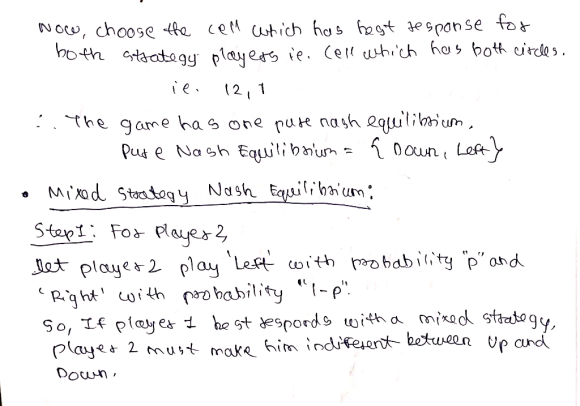 Now, choose the cell which has best response for
both strategy players ie. Cell which has both circles.
ie. 12, 1
∴ The game has one pure nash equilibrium.
Pure Nash Equilibrium = { Down, Left }
• Mixed Strategy Nash Equilibrium:
Step1: For Player 2,
let player 2 play 'Left' with probability "p" and
'Right' with probability "1-p".
So, If player 1 best responds with a mixed strategy,
Player 2 must make him indifferent between Up and
Down.